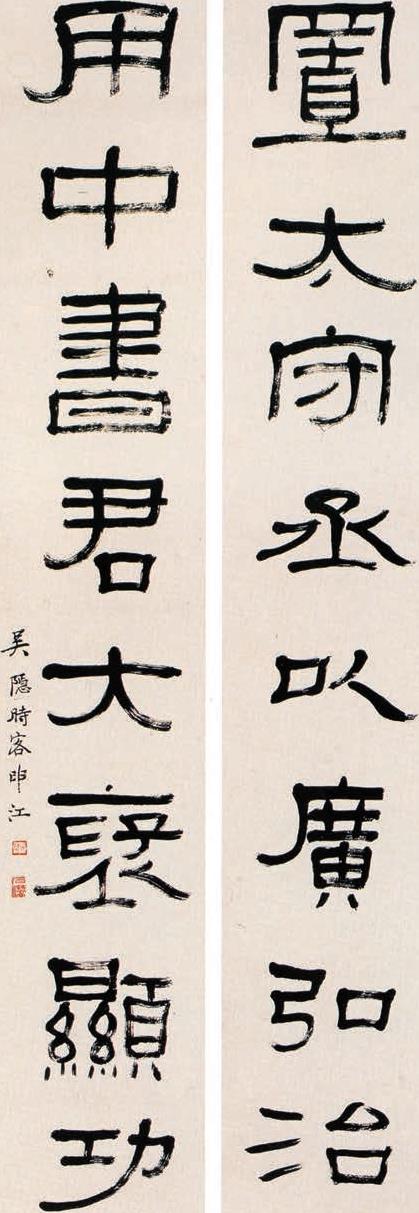 置太守丞以廣弘治
用中書君大褎顯功
吳隱時客申江